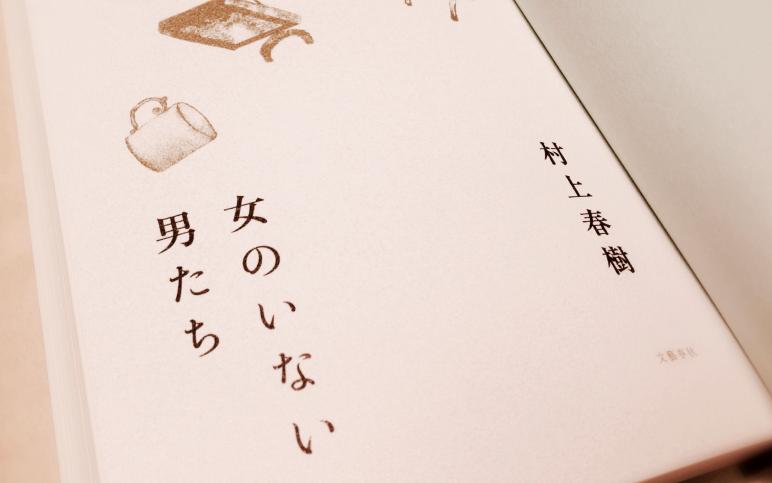 村上春樹
女のいない
男たち
文藝春秋